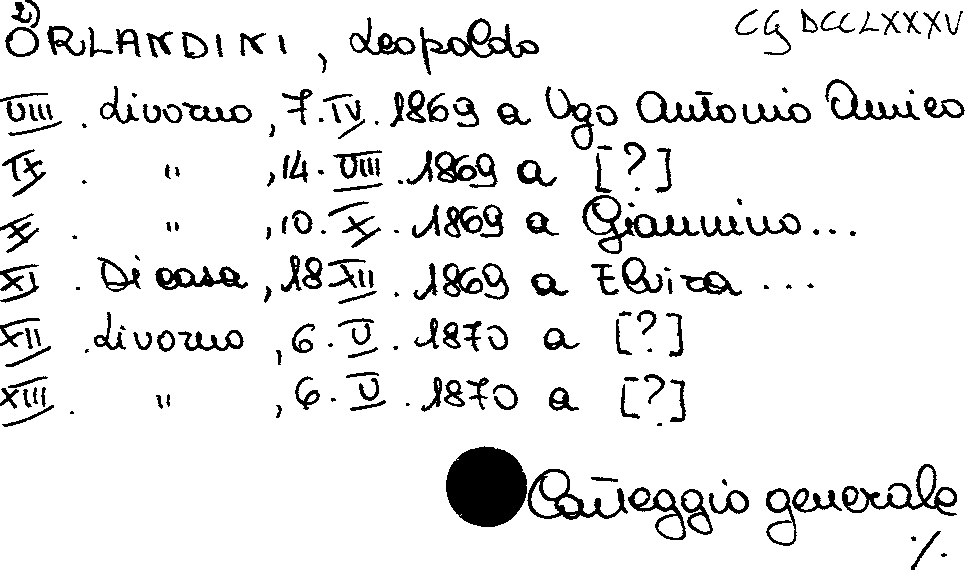 2)
ORLANDINI, Leopoldo CG DCCLXXXV
VIII. Livorno, 7.IV.1869 a Ugo Antonio Amico
IX. " , 14.VIII.1869 a [?]
X. " , 10.X.1869 a Giannino...
XI. Di casa, 18 XII.1869 a Elvira ...
XII. Livorno, 6.V.1870 a [?]
XIII. " , 6.V.1870 a [?]
Carteggio generale
./.